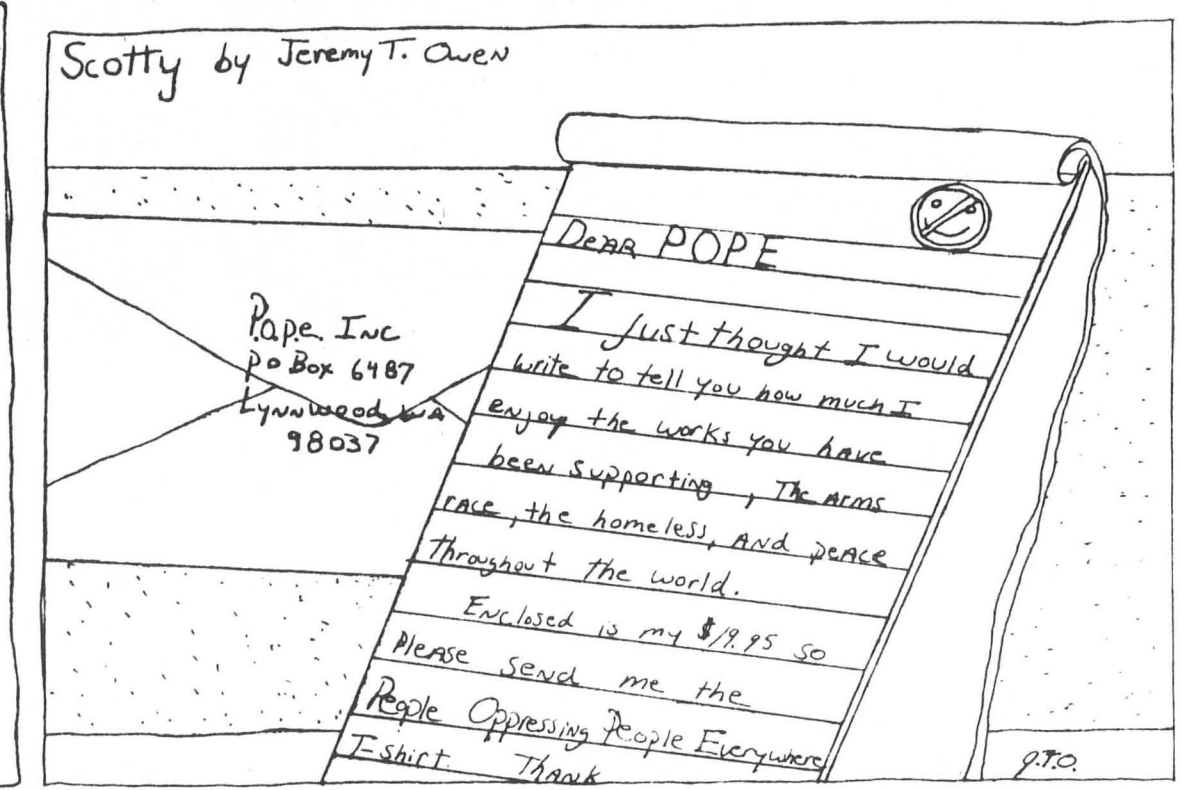 Scotty by Jeremy T. Owen
P.o.p.e. Inc
P o Box 6487
Lynnwood, WA
98037
Dear POPE
I just thought I would
write to tell you how much I
enjoy the works you have
been supporting, The arms
race, the homeless, and peace
throughout the world.
Enclosed is my $19.95 so
Please send me the
People Oppressing People Everywhere
T-shirt. Thank
J.T.O.